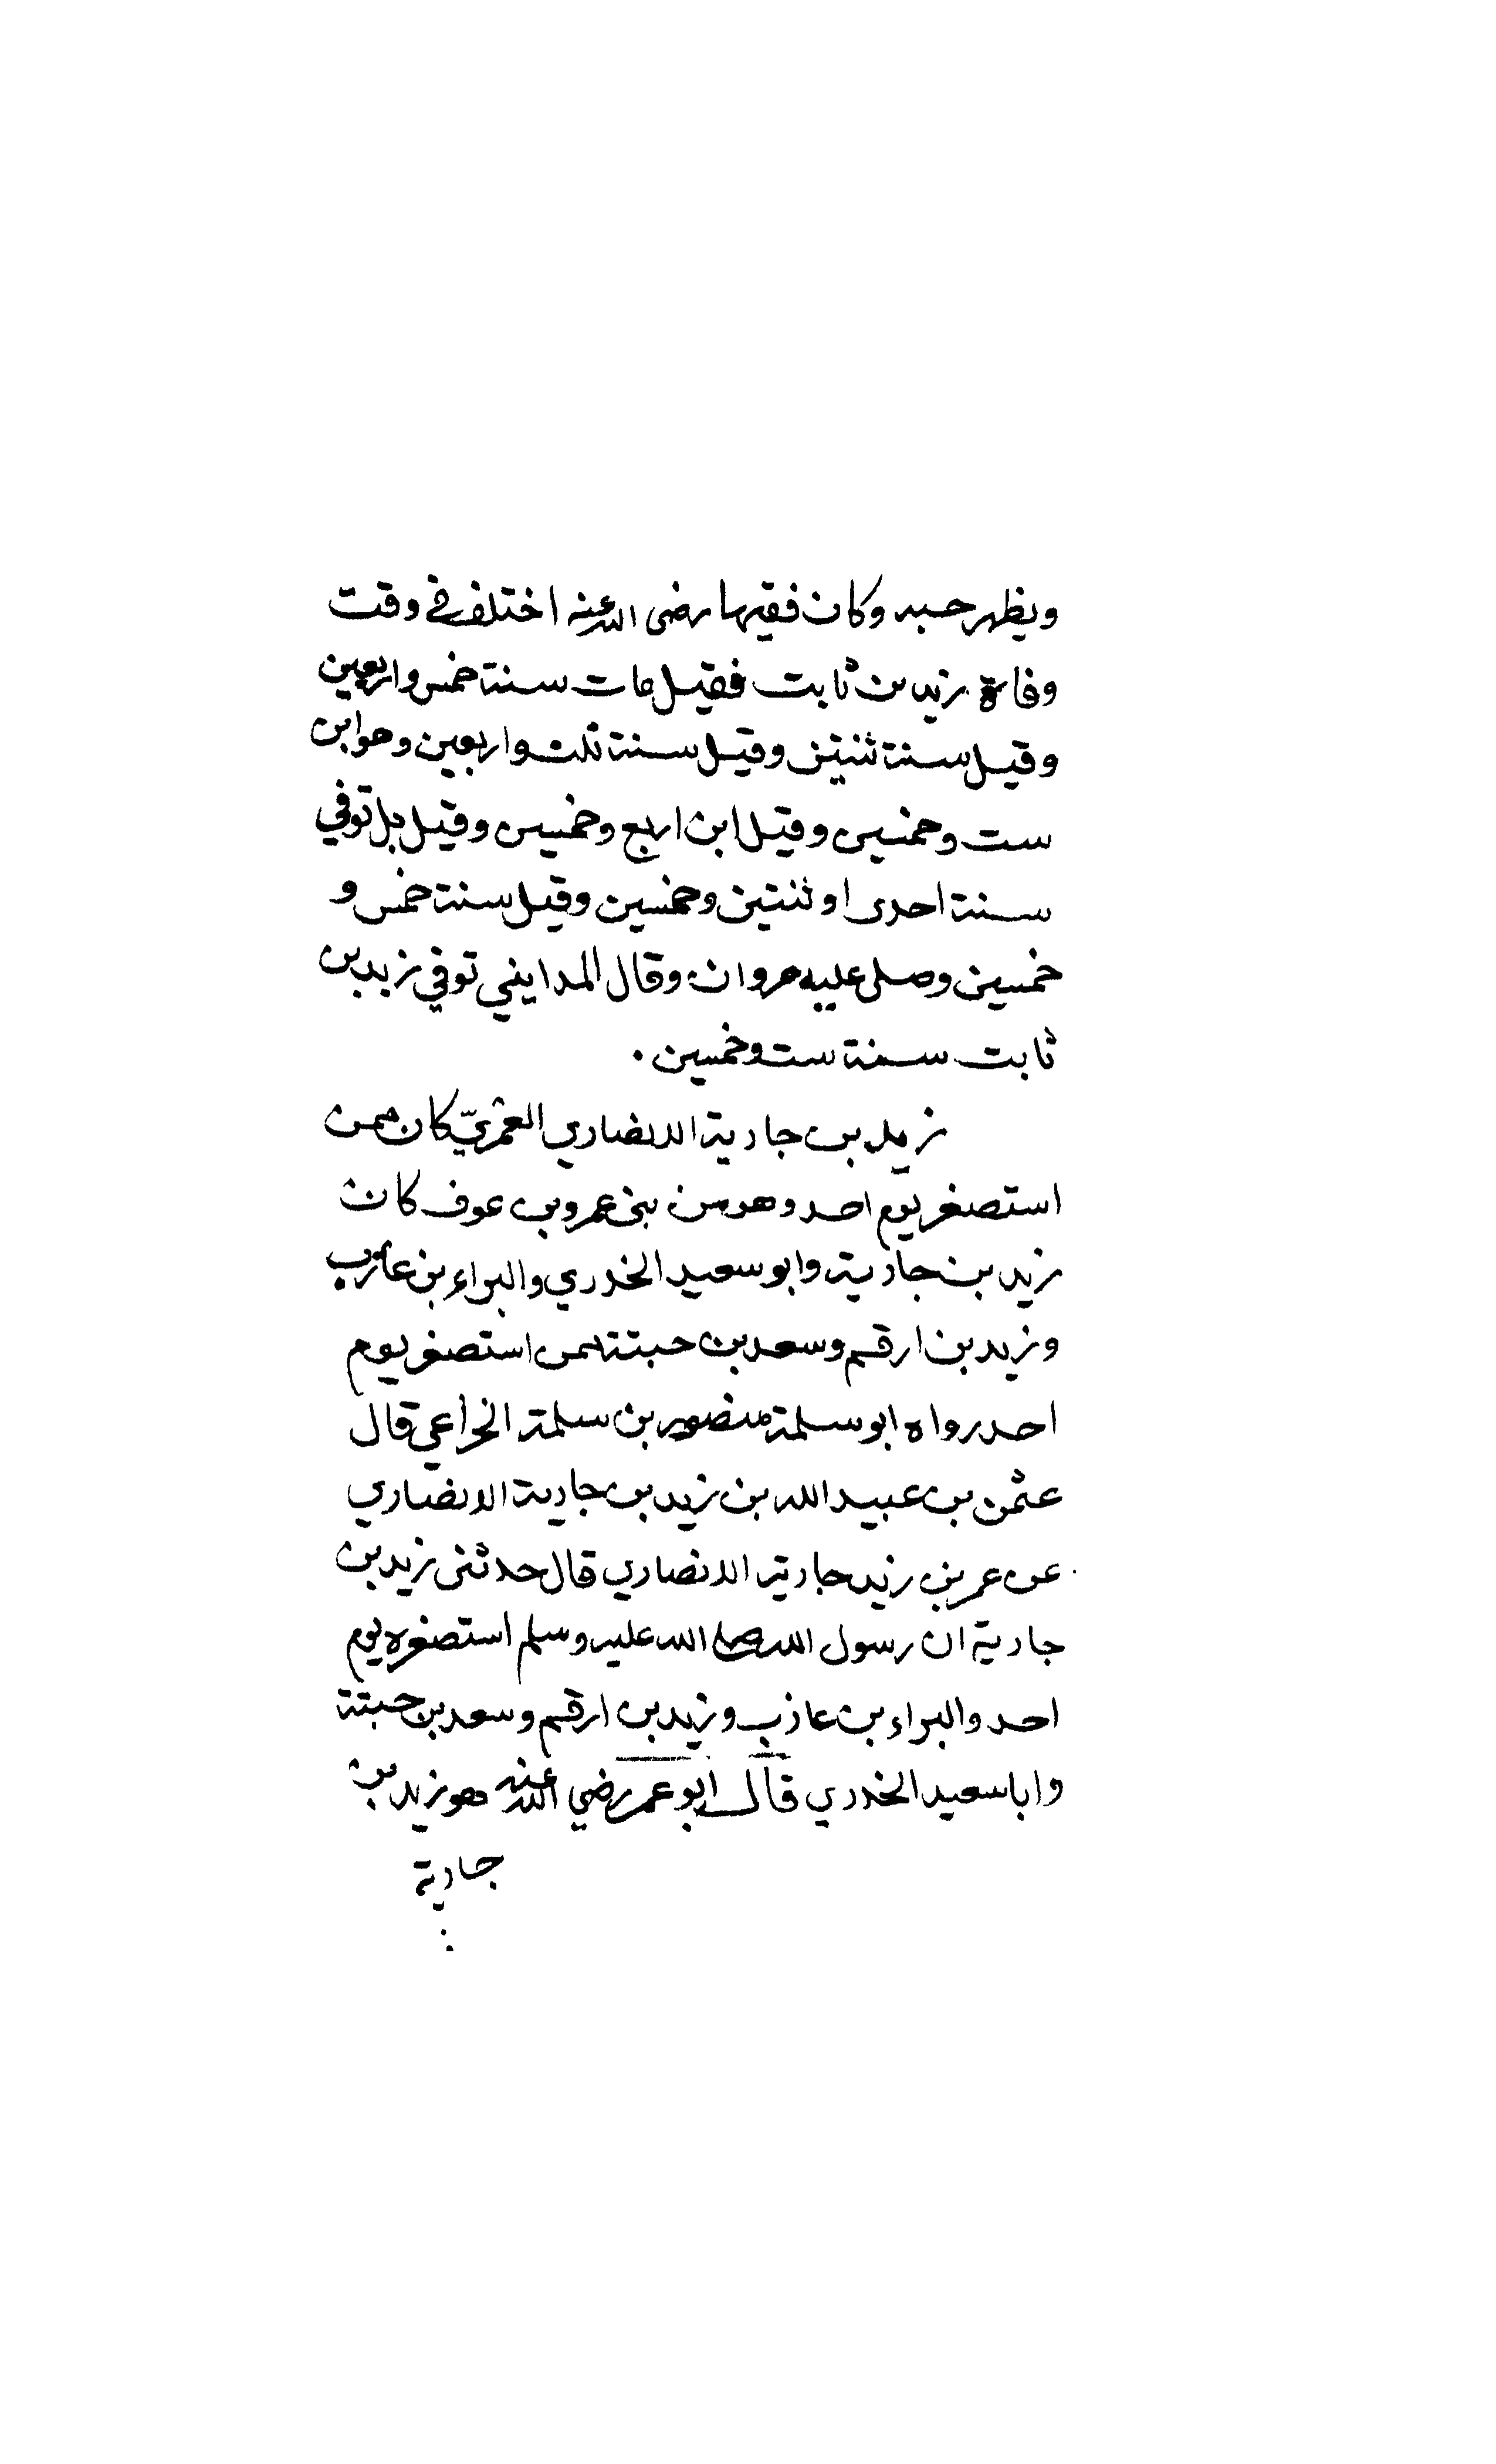 ويظهر حبه وكان فقيها رضى الله عنه اختلف في وقت
وفاة زيد بن ثابت فقيل مات سنة خمس واربعين
وقيل سنة ثنتين وقيل سنة ثلث واربعين وهو ابن
ست وخمسين وقيل ابن اربع وخمسين وقيل بل توفي
سنة احدى او ثنتين وخمسين وقيل سنة خمس و
خمسين وصلى عليه مروان وقال المدايني توفي زيد بن
ثابت سنة ست وخمسين .
زيد بن جارية الانصاري العمريّ كان ممن
استصغر يوم احد وهو من بنى عمرو بن عوف كان
زيد بن جارية وابو سعيد الخدري والبراء بن عازب
وزيد بن ارقم وسعد بن حبتة ممن استصغر يوم
احد رواه ابو سلمة منصور بن سلمة الخزاعي قال
عثمن بن عبيد الله بن زيد بن جارية الانصاري
عن عمر بن زيد جارية الانصاري قال حدثنى زيد بن
جارية ان رسول الله صلى الله عليه وسلم استصغره يوم
احد والبراء بن عازب وزيد بن ارقم وسعد بن حبتة
وابا سعيد الخدري قال ابو عمر رضي الله عنه هو زيد بن
جارية